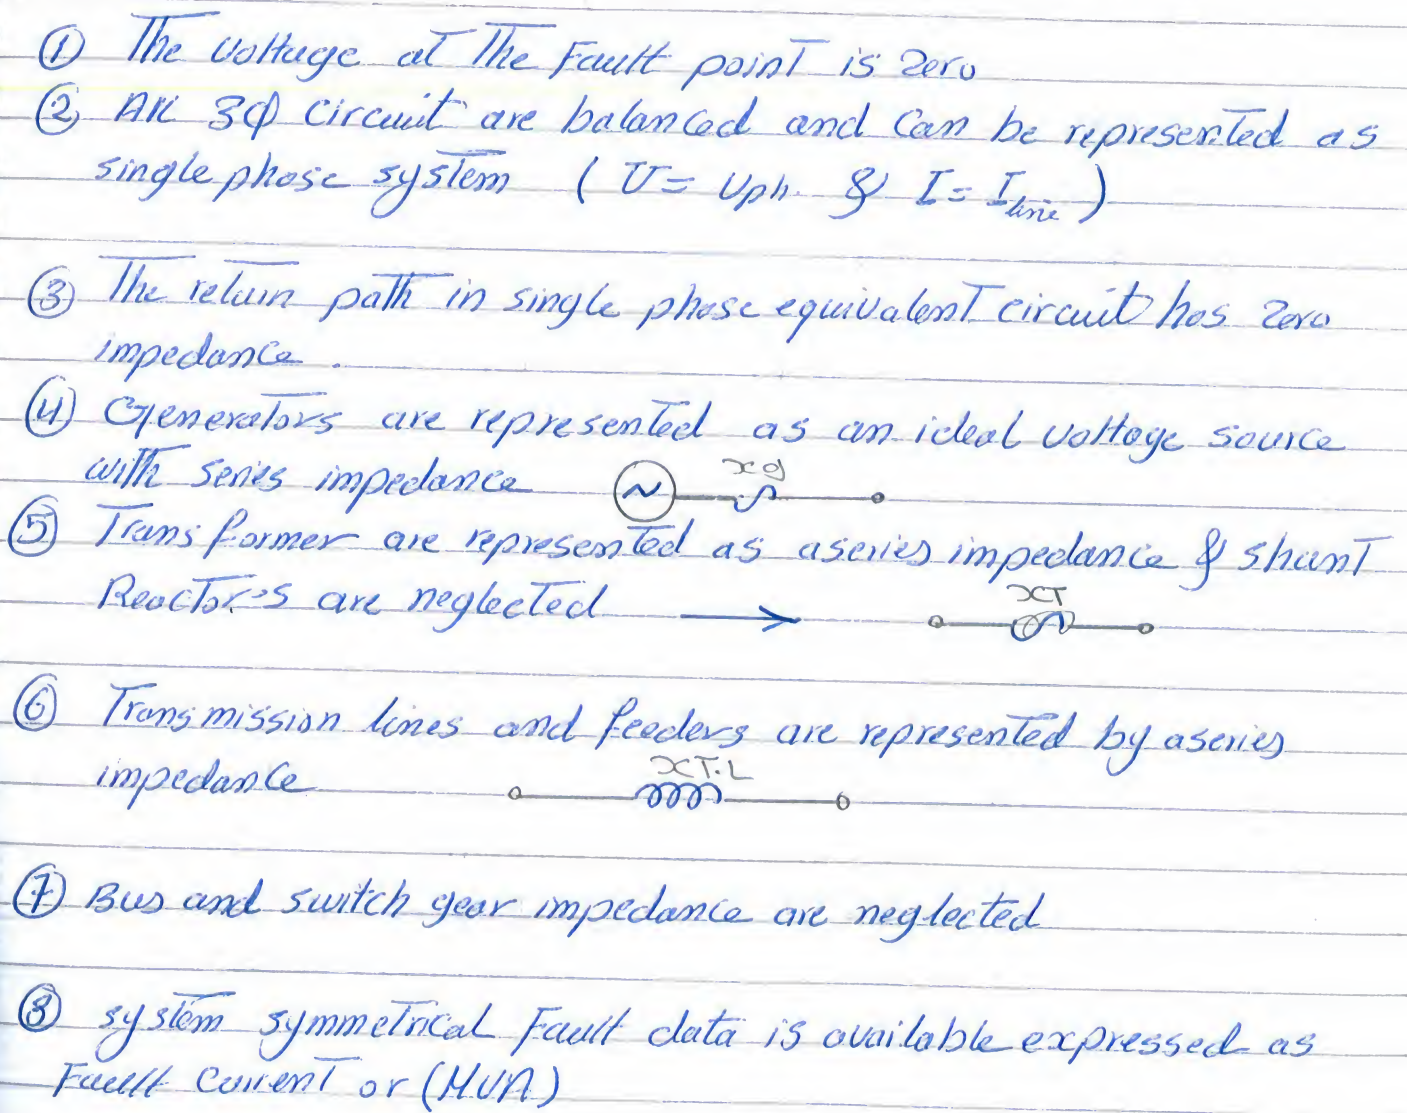 ① The voltage at The Fault point is zero
② All 3φ circuit are balanced and can be represented as
single phase system ( U = Uph. & I = I line )
③ The return path in single phase equivalent circuit has zero
impedance .
④ Generators are represented as an ideal voltage source
with series impedance ~ xg
⑤ Transformer are represented as a series impedance & shunt
Reactor's are neglected → XT
⑥ Transmission lines and feeders are represented by a series
impedance XT.L
⑦ Bus and switch gear impedance are neglected
⑧ system symmetrical Fault data is available expressed as
Fault current or (MVA)